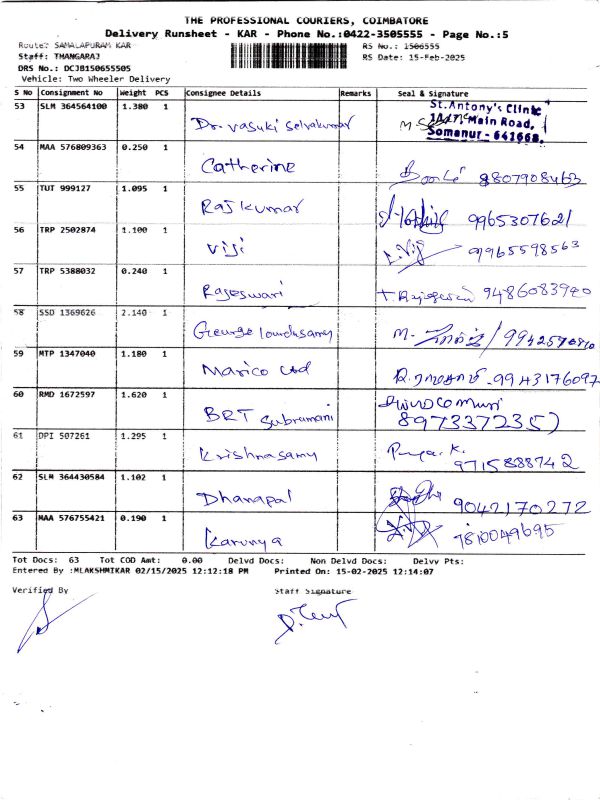 THE PROFESSIONAL COURIERS, COIMBATORE
Delivery Runsheet - KAR - Phone No.:0422-3505555 - Page No.:5
Route: SAMALAPURAM KAR
RS No.: 1506555
Staff: THANGARAJ
RS Date: 15-Feb-2025
DRS No.: DCJB150655505
Vehicle: Two Wheeler Delivery
S No Consignment No Weight PCS Consignee Details Remarks Seal & Signature
53 SLM 364564100 1.380 1 Dr. Vasuki Selvakumar
St.Antony's Clinic
Main Road,
Somanur - 641668.
54 MAA 576809363 0.250 1 Catherine 8807908463
55 TUT 999127 1.095 1 Rajkumar 9965307621
56 TRP 2502874 1.100 1 Viji 9965598563
57 TRP 5388032 0.240 1 Rajeswari 9486083920
58 SSD 1369626 2.140 1 George lourdusamy M.
59 MTP 1347040 1.180 1 Marico Ltd 9943176097
60 RMD 1672597 1.620 1 BRT Subramani
61 DPI 507261 1.295 1 Krishnasamy K. 9715888742
62 SLM 364430584 1.102 1 Dhanapal 9042170272
63 MAA 576755421 0.190 1 Karunya 7810049695
Tot Docs: 63 Tot COD Amt: 0.00 Delvd Docs: Non Delvd Docs: Delvv Pts:
Entered By :MLAKSHMIKAR 02/15/2025 12:12:18 PM Printed On: 15-02-2025 12:14:07
Verified By Staff Signature